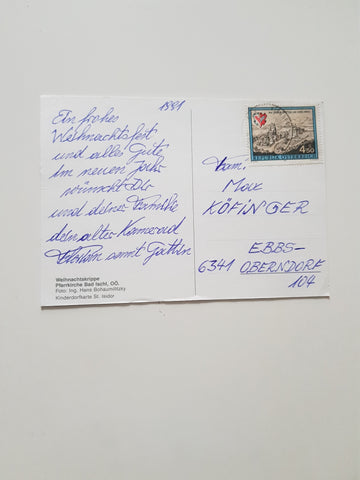 1991
Ein frohes
Weihnachtsfest
und alles Gute
im neuen Jahr
wünscht Dir
und deiner Familie
dein alter Kamerad
samt Gattin
Weihnachtskrippe
Pfarrkirche Bad Ischl, OÖ.
Foto: Ing. Hans Bohaumilitzky
Kinderdorfkarte St. Isidor
4.50
REPUBLIK ÖSTERREICH
Fam.
KÖFINGER
EBBS-
6341 OBERNDORF
104